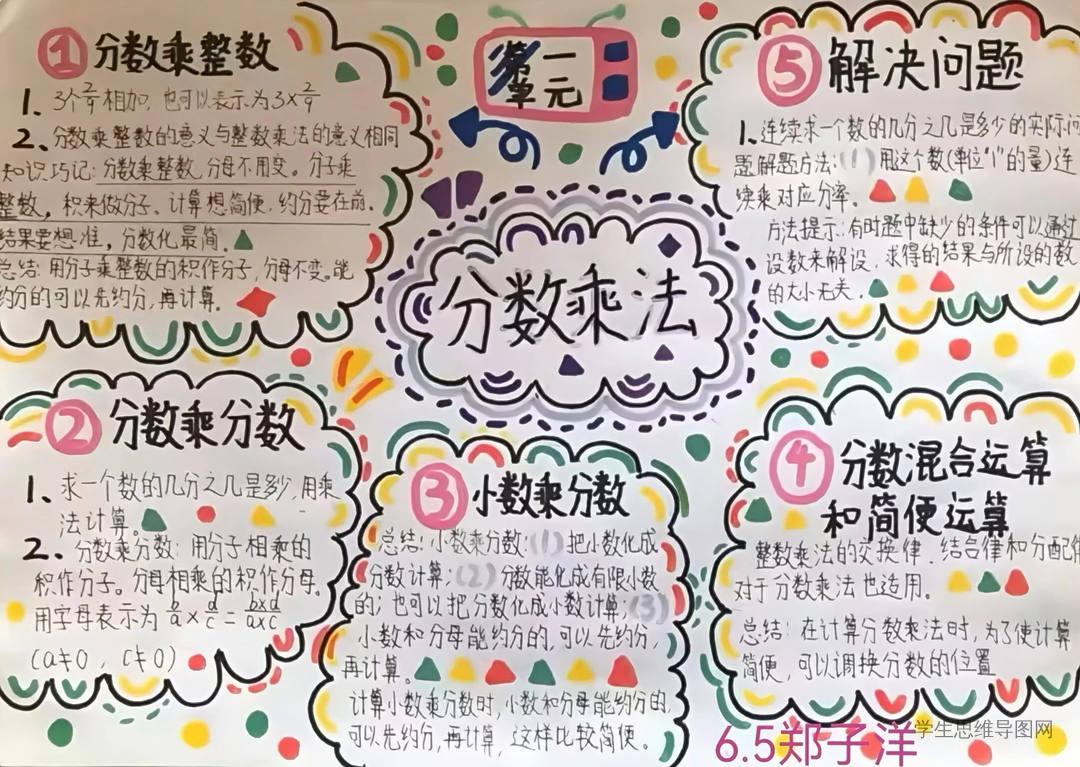 第一
单元
分数乘法
① 分数乘整数
1. 3个2/9相加,也可以表示为3×2/9
2. 分数乘整数的意义与整数乘法的意义相同
知识巧记:分数乘整数,分母不用变。分子乘
整数,积来做分子。计算想简便,约分要在前。
结果要想准,分数化最简。
总结:用分子乘整数的积作分子,分母不变。能
约分的可以先约分,再计算。
② 分数乘分数
1. 求一个数的几分之几是多少,用乘
法计算。
2. 分数乘分数:用分子相乘的
积作分子。分母相乘的积作分母。
用字母表示为 b/a×d/c=b×d/a×c
(a≠0,c≠0)
③ 小数乘分数
总结:小数乘分数:(1)把小数化成
分数计算;(2)分数能化成有限小数
的;也可以把分数化成小数计算;(3)
小数和分母能约分的,可以先约分,
再计算。
计算小数乘分数时,小数和分母能约分的,
可以先约分,再计算,这样比较简便。
④ 分数混合运算
和简便运算
整数乘法的交换律、结合律和分配律
对于分数乘法也适用。
总结:在计算分数乘法时,为了使计算
简便,可以调换分数的位置
⑤ 解决问题
1. 连续求一个数的几分之几是多少的实际问
题解题方法:(1)用这个数(单位"1"的量)连
续乘对应分率。
方法提示:有时题中缺少的条件可以通过
设数来解设,求得的结果与所设的数
的大小无关.
6.5郑子洋
学生思维导图网